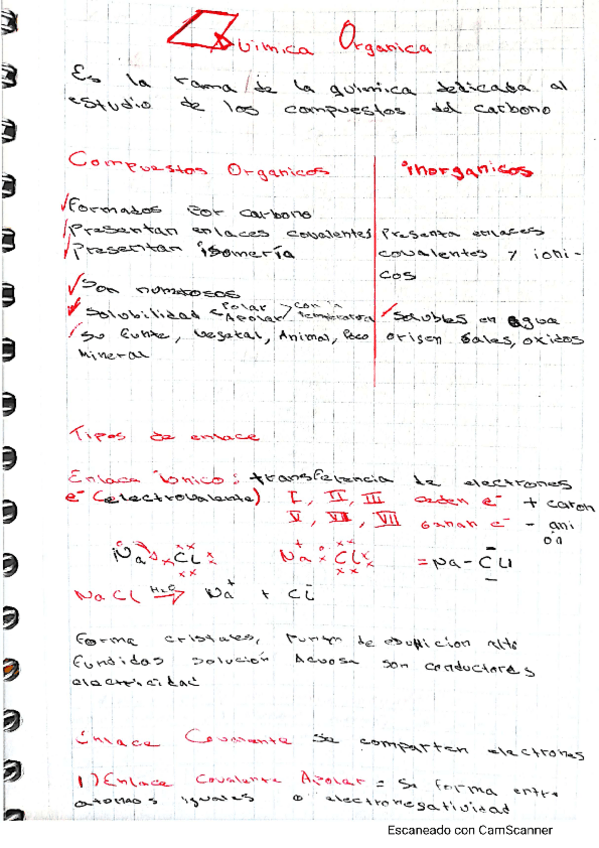 Química Organica
Es la rama de la química dedicada al
estudio de los compuestos del carbono
Compuestos Organicos
inorganicos
Formados por carbono
Presentan enlaces covalentes
Presentan isomería
Presenta enlaces
covalentes y ioni-
cos
Son numerosos
Solubilidad Polar Apolar con la temperatura
Solubles en agua
Su fuente, Vegetal, Animal, Poco
mineral
origen sales, oxidos
Tipos de enlace
Enlace ionico: transferencia de electrones
e- (electrovalente) I, II, III ceden e- + cation
V, VI, VII ganan e- - anion
Na Cl Na+ Cl = Na - Cl
NaCl H2O → Na+ + Cl-
Forma cristales, punto de ebullicion alto
fundidas solución Acuosa son conductores
electricidad
Enlace Covalente se comparten electrones
1) Enlace Covalente Apolar = Se forma entre
atomos iguales o electronegatividad
Escaneado con CamScanner